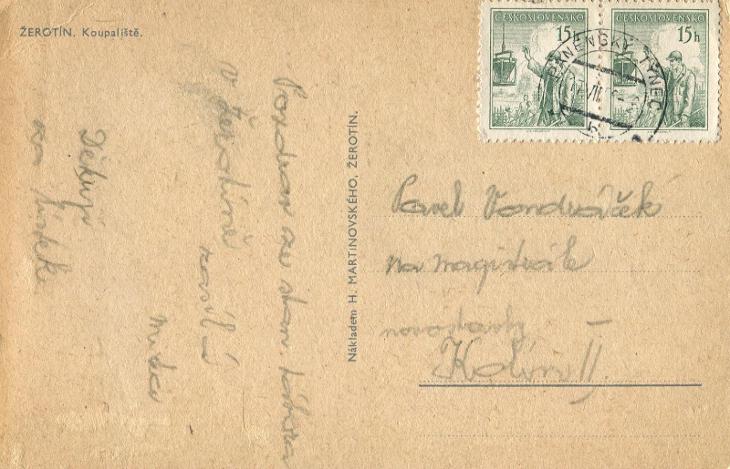 ŽEROTÍN. Koupaliště.
ČESKOSLOVENSKO
15h
ČESKOSLOVENSKO
15h
PANENSKÝ TÝNEC
Pozdrav ze stan. tábora
v Žerotíně
zasílá
Mirek
Děkuji
za lístek
Nákladem H. MARTINOVSKÉHO, ŽEROTÍN.
Pavel Vondráček
na magistrále
novostavby
Kolín II.